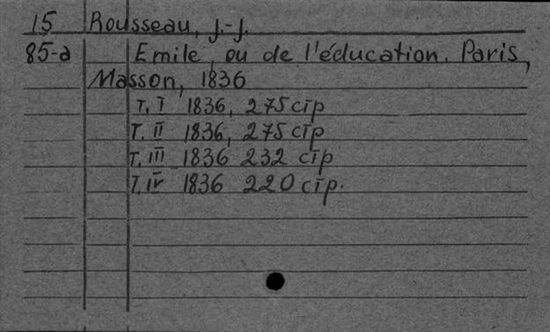 15 Rousseau, J.-J.
85-a Emile, ou de l'éducation. Paris,
Masson, 1836
T. I 1836, 275 стр
T. II 1836, 275 стр
T. III 1836 232 стр
T. IV 1836 220 стр.